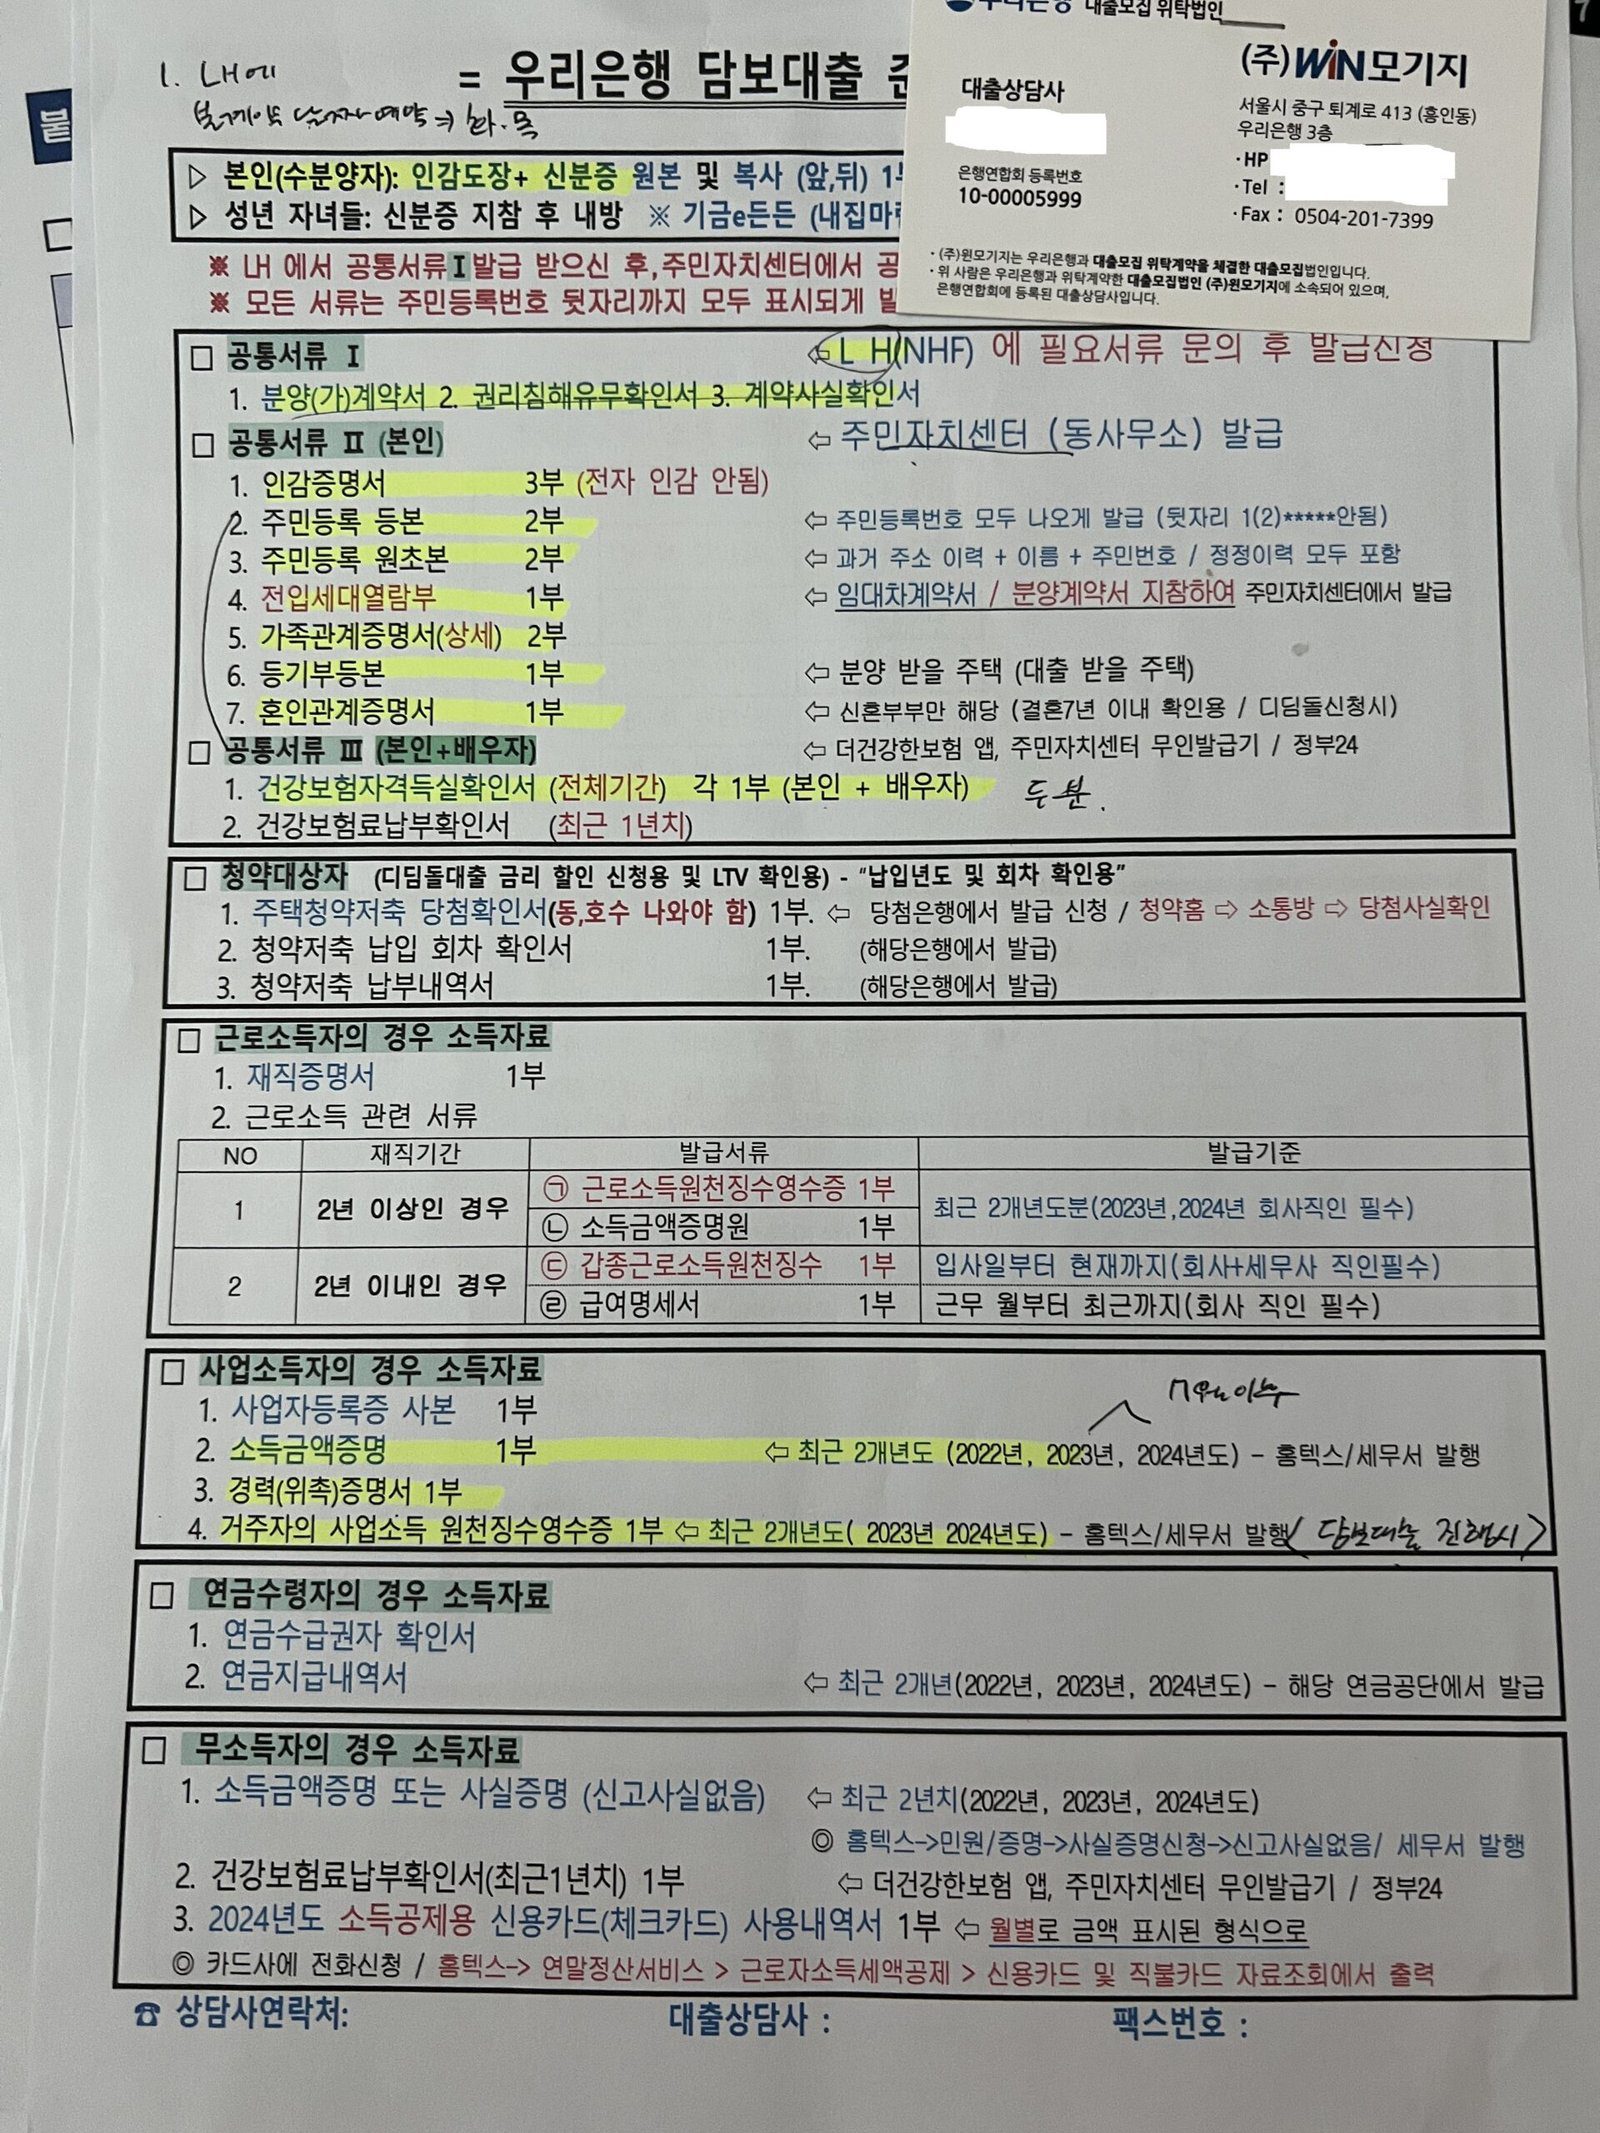 1. LH에
= 우리은행 담보대출
우리은행 대출모집 위탁법인
(주)WIN모기지
대출상담사
서울시 중구 퇴계로 413 (흥인동)
우리은행 3층
·HP
·Tel :
·Fax : 0504-201-7399
은행연합회 등록번호
10-00005999
· (주)윈모기지는 우리은행과 대출모집 위탁계약을 체결한 대출모집법인입니다.
· 위 사람은 우리은행과 위탁계약한 대출모집법인 (주)윈모기지에 소속되어 있으며,
은행연합회에 등록된 대출상담사입니다.
▷ 본인(수분양자): 인감도장+ 신분증 원본 및 복사 (앞,뒤)
▷ 성년 자녀들: 신분증 지참 후 내방 ※ 기금e든든
※ LH 에서 공통서류Ⅰ발급 받으신 후,주민자치센터에서
※ 모든 서류는 주민등록번호 뒷자리까지 모두 표시되게
□ 공통서류 Ⅰ ⇦ L H(NHF) 에 필요서류 문의 후 발급신청
1. 분양(가)계약서 2. 권리침해유무확인서 3. 계약사실확인서
□ 공통서류 Ⅱ (본인) ⇦ 주민자치센터 (동사무소) 발급
1. 인감증명서 3부 (전자 인감 안됨)
2. 주민등록 등본 2부 ⇦ 주민등록번호 모두 나오게 발급 (뒷자리 1(2)*****안됨)
3. 주민등록 원초본 2부 ⇦ 과거 주소 이력 + 이름 + 주민번호 / 정정이력 모두 포함
4. 전입세대열람부 1부 ⇦ 임대차계약서 / 분양계약서 지참하여 주민자치센터에서 발급
5. 가족관계증명서(상세) 2부
6. 등기부등본 1부 ⇦ 분양 받을 주택 (대출 받을 주택)
7. 혼인관계증명서 1부 ⇦ 신혼부부만 해당 (결혼7년 이내 확인용 / 디딤돌신청시)
□ 공통서류 Ⅲ (본인+배우자) ⇦ 더건강한보험 앱, 주민자치센터 무인발급기 / 정부24
1. 건강보험자격득실확인서 (전체기간) 각 1부 (본인 + 배우자) 두분.
2. 건강보험료납부확인서 (최근 1년치)
□ 청약대상자 (디딤돌대출 금리 할인 신청용 및 LTV 확인용) - "납입년도 및 회차 확인용"
1. 주택청약저축 당첨확인서(동,호수 나와야 함) 1부. ⇦ 당첨은행에서 발급 신청 / 청약홈 ⇨ 소통방 ⇨ 당첨사실확인
2. 청약저축 납입 회차 확인서 1부. (해당은행에서 발급)
3. 청약저축 납부내역서 1부. (해당은행에서 발급)
□ 근로소득자의 경우 소득자료
1. 재직증명서 1부
2. 근로소득 관련 서류
NO 재직기간 발급서류 발급기준
1 2년 이상인 경우 ㉠ 근로소득원천징수영수증 1부 최근 2개년도분(2023년,2024년 회사직인 필수)
㉡ 소득금액증명원 1부
2 2년 이내인 경우 ㉢ 갑종근로소득원천징수 1부 입사일부터 현재까지(회사+세무사 직인필수)
㉣ 급여명세서 1부 근무 월부터 최근까지(회사 직인 필수)
□ 사업소득자의 경우 소득자료
1. 사업자등록증 사본 1부
2. 소득금액증명 1부 ⇦ 최근 2개년도 (2022년, 2023년, 2024년도) - 홈텍스/세무서 발행
3. 경력(위촉)증명서 1부
4. 거주자의 사업소득 원천징수영수증 1부 ⇦ 최근 2개년도( 2023년 2024년도) - 홈텍스/세무서 발행 (담보대출 진행시)
□ 연금수령자의 경우 소득자료
1. 연금수급권자 확인서
2. 연금지급내역서 ⇦ 최근 2개년(2022년, 2023년, 2024년도) - 해당 연금공단에서 발급
□ 무소득자의 경우 소득자료
1. 소득금액증명 또는 사실증명 (신고사실없음) ⇦ 최근 2년치(2022년, 2023년, 2024년도)
◎ 홈텍스->민원/증명->사실증명신청->신고사실없음/ 세무서 발행
2. 건강보험료납부확인서(최근1년치) 1부 ⇦ 더건강한보험 앱, 주민자치센터 무인발급기 / 정부24
3. 2024년도 소득공제용 신용카드(체크카드) 사용내역서 1부 ⇦ 월별로 금액 표시된 형식으로
◎ 카드사에 전화신청 / 홈텍스-> 연말정산서비스 > 근로자소득세액공제 > 신용카드 및 직불카드 자료조회에서 출력
☎ 상담사연락처: 대출상담사 : 팩스번호 :